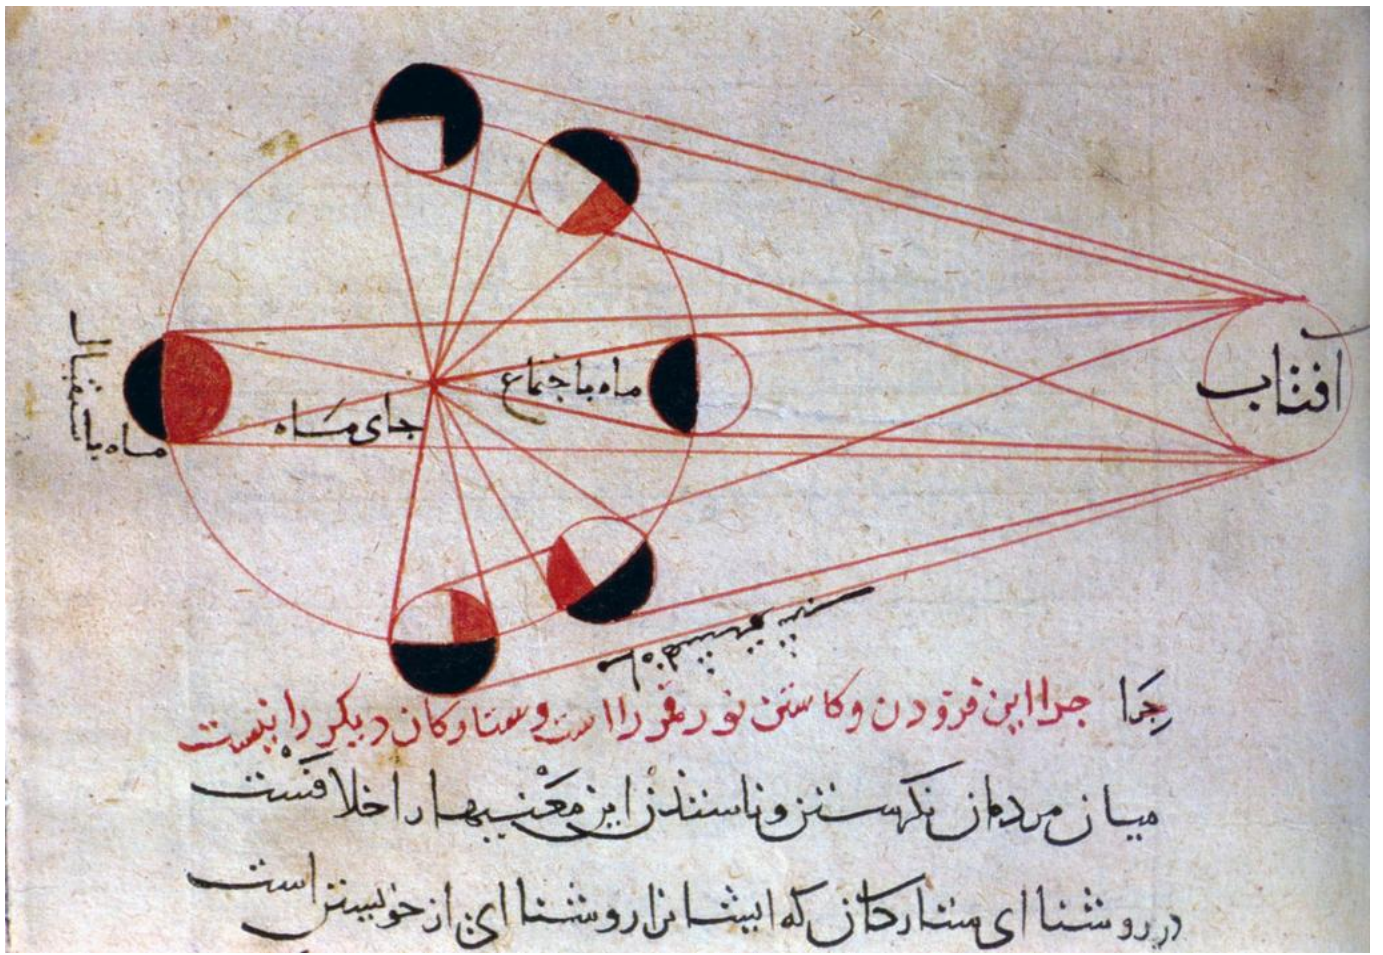 افتاب
ماه باجتماع
جای مَاه
ماه باستقبال
چرا چرا این فزودن وکاستن نور قمر را است وستارکان دیکر را نیست
میان مردمان نکرستن و این مَعْنیها را خلافَسْت
در روشنا ای ستارکان که ایشانرا روشنا ای از خویشتن است